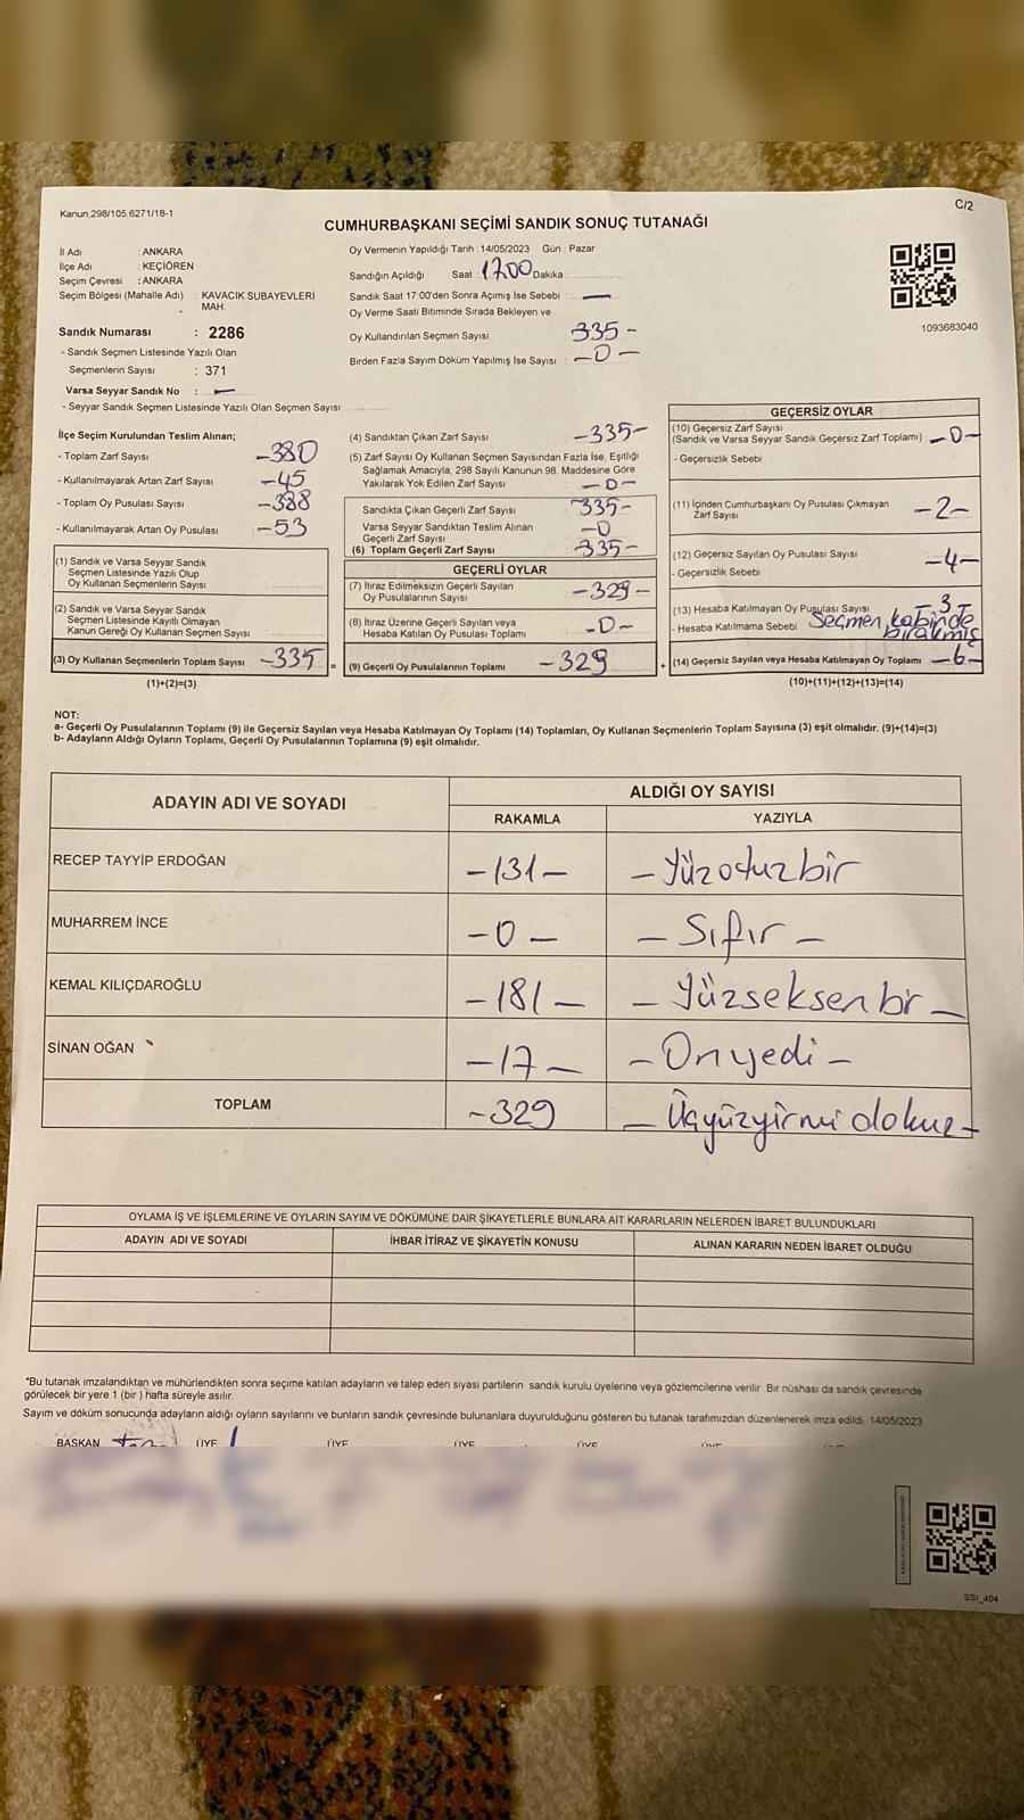 Kanun 298/105 6271/18-1
C/2
CUMHURBAŞKANI SEÇİMİ SANDIK SONUÇ TUTANAĞI
İl Adı : ANKARA
İlçe Adı : KEÇİÖREN
Seçim Çevresi : ANKARA
Seçim Bölgesi (Mahalle Adı) : KAVACIK SUBAYEVLERİ
MAH.
Sandık Numarası : 2286
- Sandık Seçmen Listesinde Yazılı Olan
Seçmenlerin Sayısı : 371
Varsa Seyyar Sandık No : —
- Seyyar Sandık Seçmen Listesinde Yazılı Olan Seçmen Sayısı
Oy Vermenin Yapıldığı Tarih : 14/05/2023 Gün : Pazar
Sandığın Açıldığı Saat 17.00 Dakika
Sandık Saat 17:00'den Sonra Açımış İse Sebebi : —
Oy Verme Saati Bitiminde Sırada Bekleyen ve
Oy Kullandırılan Seçmen Sayısı 335 -
Birden Fazla Sayım Döküm Yapılmış İse Sayısı : -0-
1093683040
İlçe Seçim Kurulundan Teslim Alınan;
- Toplam Zarf Sayısı -380
- Kullanılmayarak Artan Zarf Sayısı -45
- Toplam Oy Pusulası Sayısı -388
- Kullanılmayarak Artan Oy Pusulası -53
(1) Sandık ve Varsa Seyyar Sandık
Seçmen Listesinde Yazılı Olup
Oy Kullanan Seçmenlerin Sayısı
(2) Sandık ve Varsa Seyyar Sandık
Seçmen Listesinde Kayıtlı Olmayan
Kanun Gereği Oy Kullanan Seçmen Sayısı
(3) Oy Kullanan Seçmenlerin Toplam Sayısı -335
(1)+(2)=(3)
(4) Sandıktan Çıkan Zarf Sayısı -335-
(5) Zarf Sayısı Oy Kullanan Seçmen Sayısından Fazla İse, Eşitliği
Sağlamak Amacıyla, 298 Sayılı Kanunun 98. Maddesine Göre
Yakılarak Yok Edilen Zarf Sayısı -0-
Sandıkta Çıkan Geçerli Zarf Sayısı 335-
Varsa Seyyar Sandıktan Teslim Alınan
Geçerli Zarf Sayısı -0
(6) Toplam Geçerli Zarf Sayısı 335-
GEÇERLİ OYLAR
(7) İtiraz Edilmeksizin Geçerli Sayılan
Oy Pusulalarının Sayısı -329-
(8) İtiraz Üzerine Geçerli Sayılan veya
Hesaba Katılan Oy Pusulası Toplamı -0-
= (9) Geçerli Oy Pusulalarının Toplamı -329
GEÇERSİZ OYLAR
(10) Geçersiz Zarf Sayısı
(Sandık ve Varsa Seyyar Sandık Geçersiz Zarf Toplamı) -0-
- Geçersizlik Sebebi
(11) İçinden Cumhurbaşkanı Oy Pusulası Çıkmayan
Zarf Sayısı -2-
(12) Geçersiz Sayılan Oy Pusulası Sayısı -4-
- Geçersizlik Sebebi
(13) Hesaba Katılmayan Oy Pusulası Sayısı 3
- Hesaba Katılmama Sebebi Seçmen kabinde
bırakmış
+ (14) Geçersiz Sayılan veya Hesaba Katılmayan Oy Toplamı -6-
(10)+(11)+(12)+(13)=(14)
NOT:
a- Geçerli Oy Pusulalarının Toplamı (9) ile Geçersiz Sayılan veya Hesaba Katılmayan Oy Toplamı (14) Toplamları, Oy Kullanan Seçmenlerin Toplam Sayısına (3) eşit olmalıdır. (9)+(14)=(3)
b- Adayların Aldığı Oyların Toplamı, Geçerli Oy Pusulalarının Toplamına (9) eşit olmalıdır.
ADAYIN ADI VE SOYADI ALDIĞI OY SAYISI
RAKAMLA YAZIYLA
RECEP TAYYİP ERDOĞAN -131- -Yüzotuzbir
MUHARREM İNCE -0- -Sıfır-
KEMAL KILIÇDAROĞLU -181- -Yüzseksenbir-
SİNAN OĞAN -17- -Onyedi-
TOPLAM -329 -Üçyüzyirmi dokuz-
OYLAMA İŞ VE İŞLEMLERİNE VE OYLARIN SAYIM VE DÖKÜMÜNE DAİR ŞİKAYETLERLE BUNLARA AİT KARARLARIN NELERDEN İBARET BULUNDUKLARI
ADAYIN ADI VE SOYADI İHBAR İTİRAZ VE ŞİKAYETİN KONUSU ALINAN KARARIN NEDEN İBARET OLDUĞU
"Bu tutanak imzalandıktan ve mühürlendikten sonra seçime katılan adayların ve talep eden siyasi partilerin sandık kurulu üyelerine veya gözlemcilerine verilir. Bir nüshası da sandık çevresinde
görülecek bir yere 1 (bir) hafta süreyle asılır.
Sayım ve döküm sonucunda adayların aldığı oyların sayılarını ve bunların sandık çevresinde bulunanlara duyurulduğunu gösteren bu tutanak tarafımızdan düzenlenerek imza edildi. 14/05/2023
BAŞKAN ÜYE ÜYE ÜYE ÜYE ÜYE
SSI_404